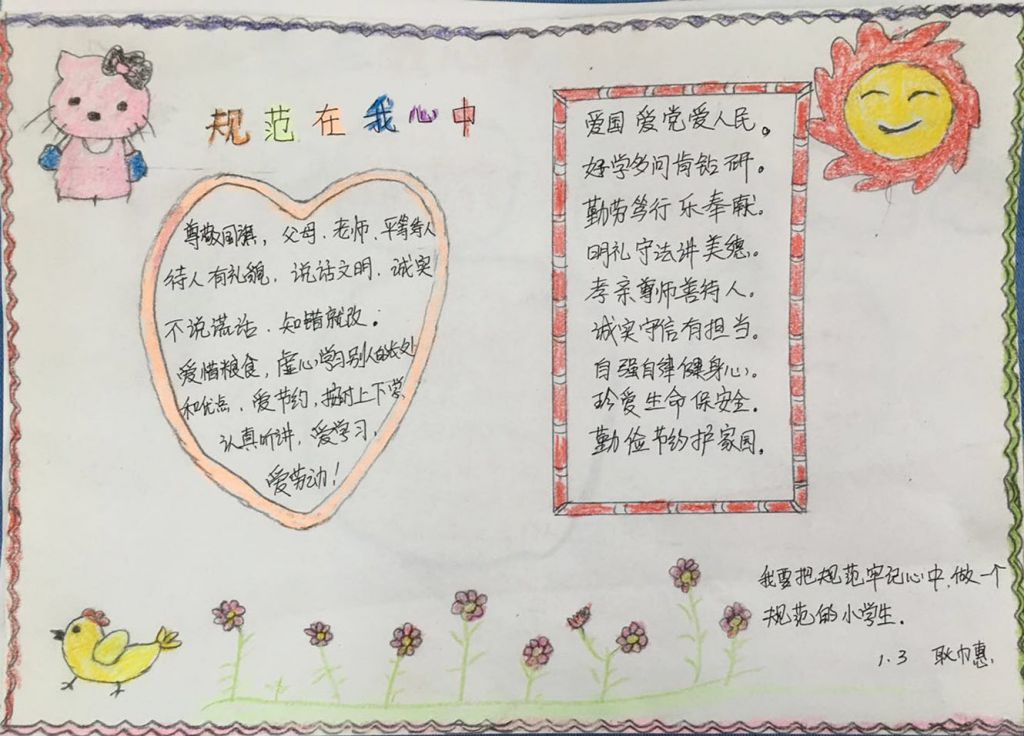 规范在我心中
尊敬国旗，父母、老师、平等待人
待人有礼貌，说话文明，诚实
不说谎话、知错就改。
爱惜粮食，虚心学习别人的长处
和优点，爱节约，按时上下学
认真听讲，爱学习，
爱劳动！
爱国爱党爱人民。
好学多问肯钻研。
勤劳笃行乐奉献。
明礼守法讲美德。
孝亲尊师善待人。
诚实守信有担当。
自强自律健身心。
珍爱生命保安全。
勤俭节约护家园。
我要把规范牢记心中，做一个
规范的小学生．
1.3 耿 惠